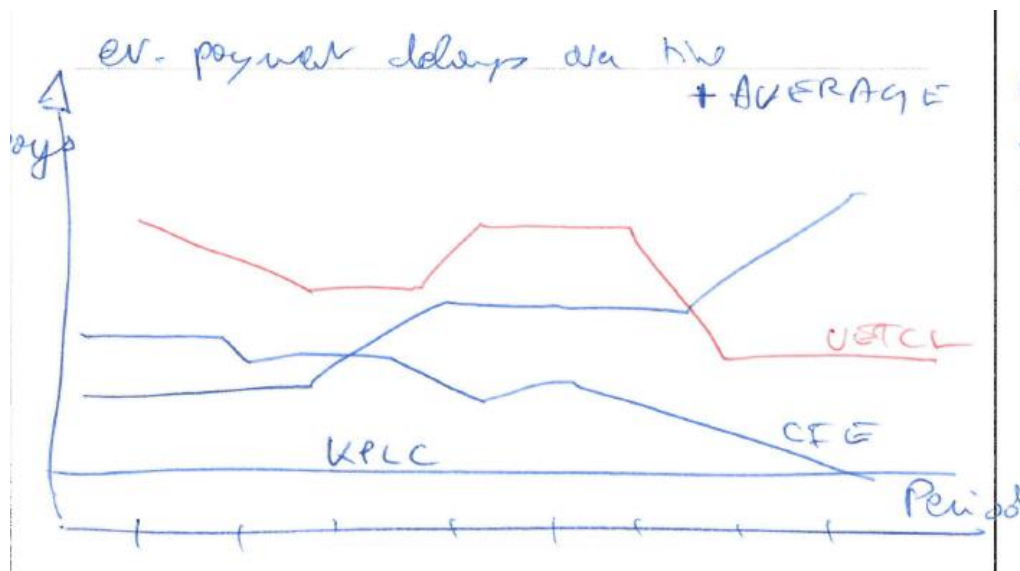 ev. payment delays over time
+ AVERAGE
ays
UETCL
CFE
KPLC
Period